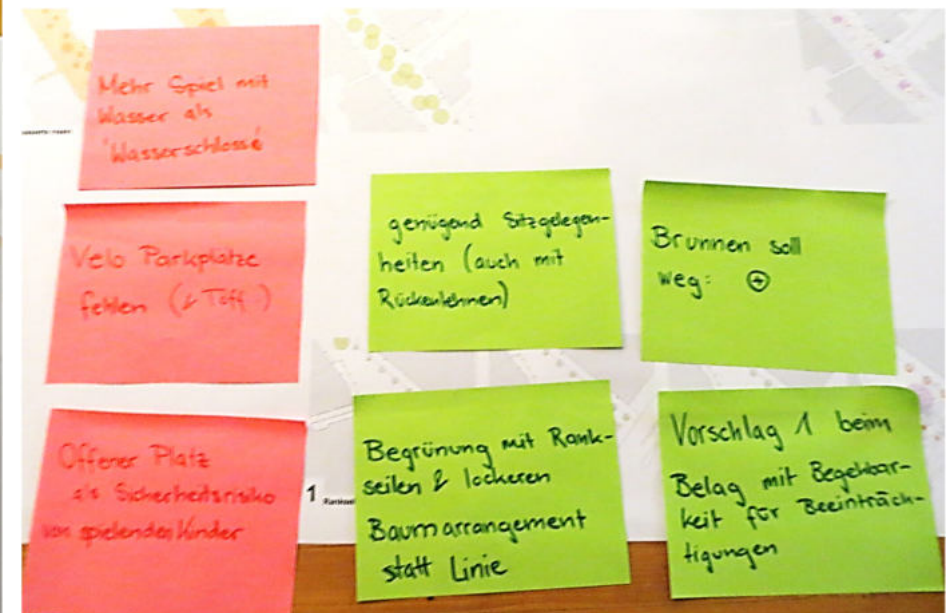 Mehr Spiel mit
Wasser als
'Wasserschlosse'
Velo Parkplätze
fehlen (& Töff.)
Offener Platz
als Sicherheitsrisiko
von spielenden Kinder
genügend Sitzgelegen-
heiten (auch mit
Rückenlehnen)
Begrünung mit Rank-
seilen & lockeren
Baumarrangement
statt Linie
Brunnen soll
weg: +
Vorschlag 1 beim
Belag mit Begehbar-
keit für Beeinträch-
tigungen
1